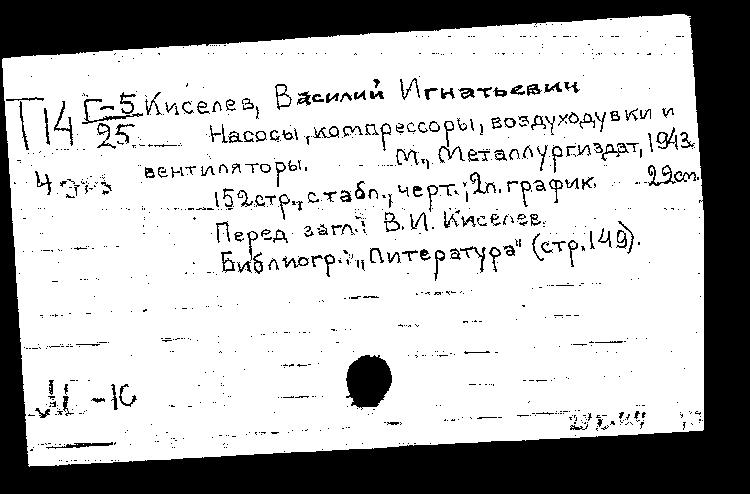 Т14 Г-5 Киселев, Василий Игнатьевич
25 Насосы, компрессоры, воздуходувки и
4 экз вентиляторы. М., Металлургиздат, 1943.
152 стр., с табл., черт.; 2л. график. 22см.
Перед загл.: В.И. Киселев.
Библиогр.: „Литература" (стр. 149).
М -10